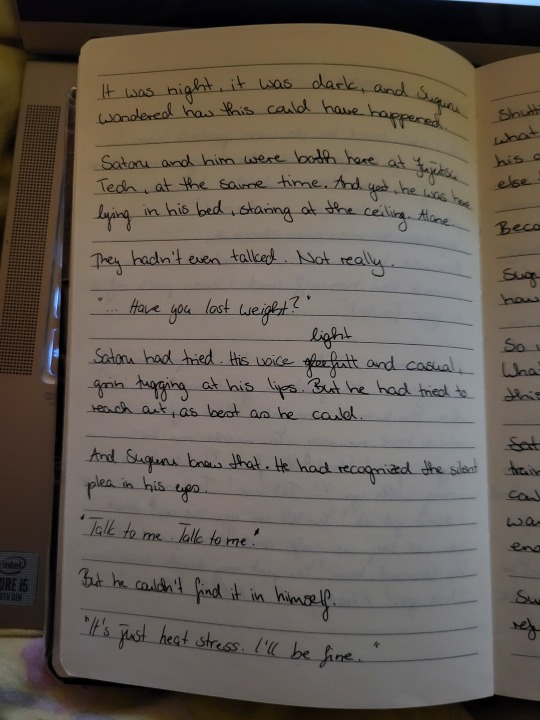 It was night, it was dark, and Suguru
wondered how this could have happened.
Satoru and him were both here at Jujutsu
Tech, at the same time. And yet, he was here
lying in his bed, staring at the ceiling. Alone.
They hadn't even talked. Not really.
"... Have you lost weight?"
light
Satoru had tried. His voice gleefull and casual,
grin tugging at his lips. But he had tried to
reach out, as best as he could.
And Suguru knew that. He had recognized the silent
plea in his eyes.
"Talk to me. Talk to me."
But he couldn't find it in himself.
"It's just heat stress. I'll be fine."
Shutt
what
his
else
Beca
Sug
how
So
Wha
this
Sat
train
cou
wa
eno
Su
ref
intel
CORE i5